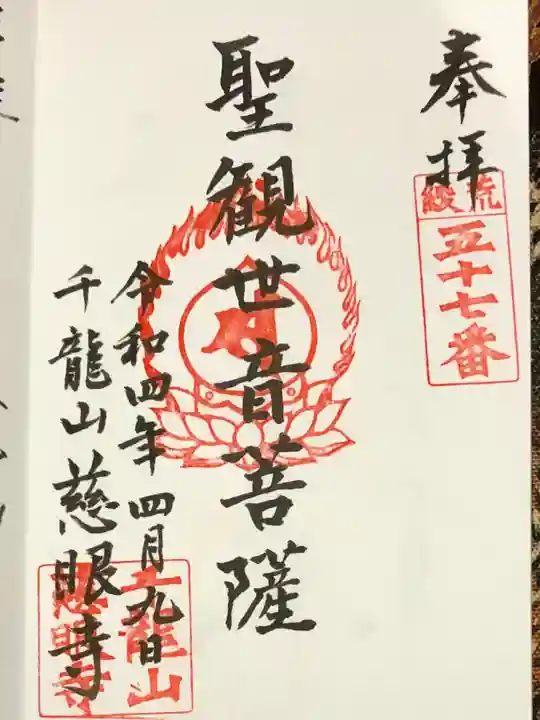 奉拝
荒綾
五十七番
聖観世音菩薩
令和四年四月九日
千龍山慈眼寺
千龍山
慈眼寺